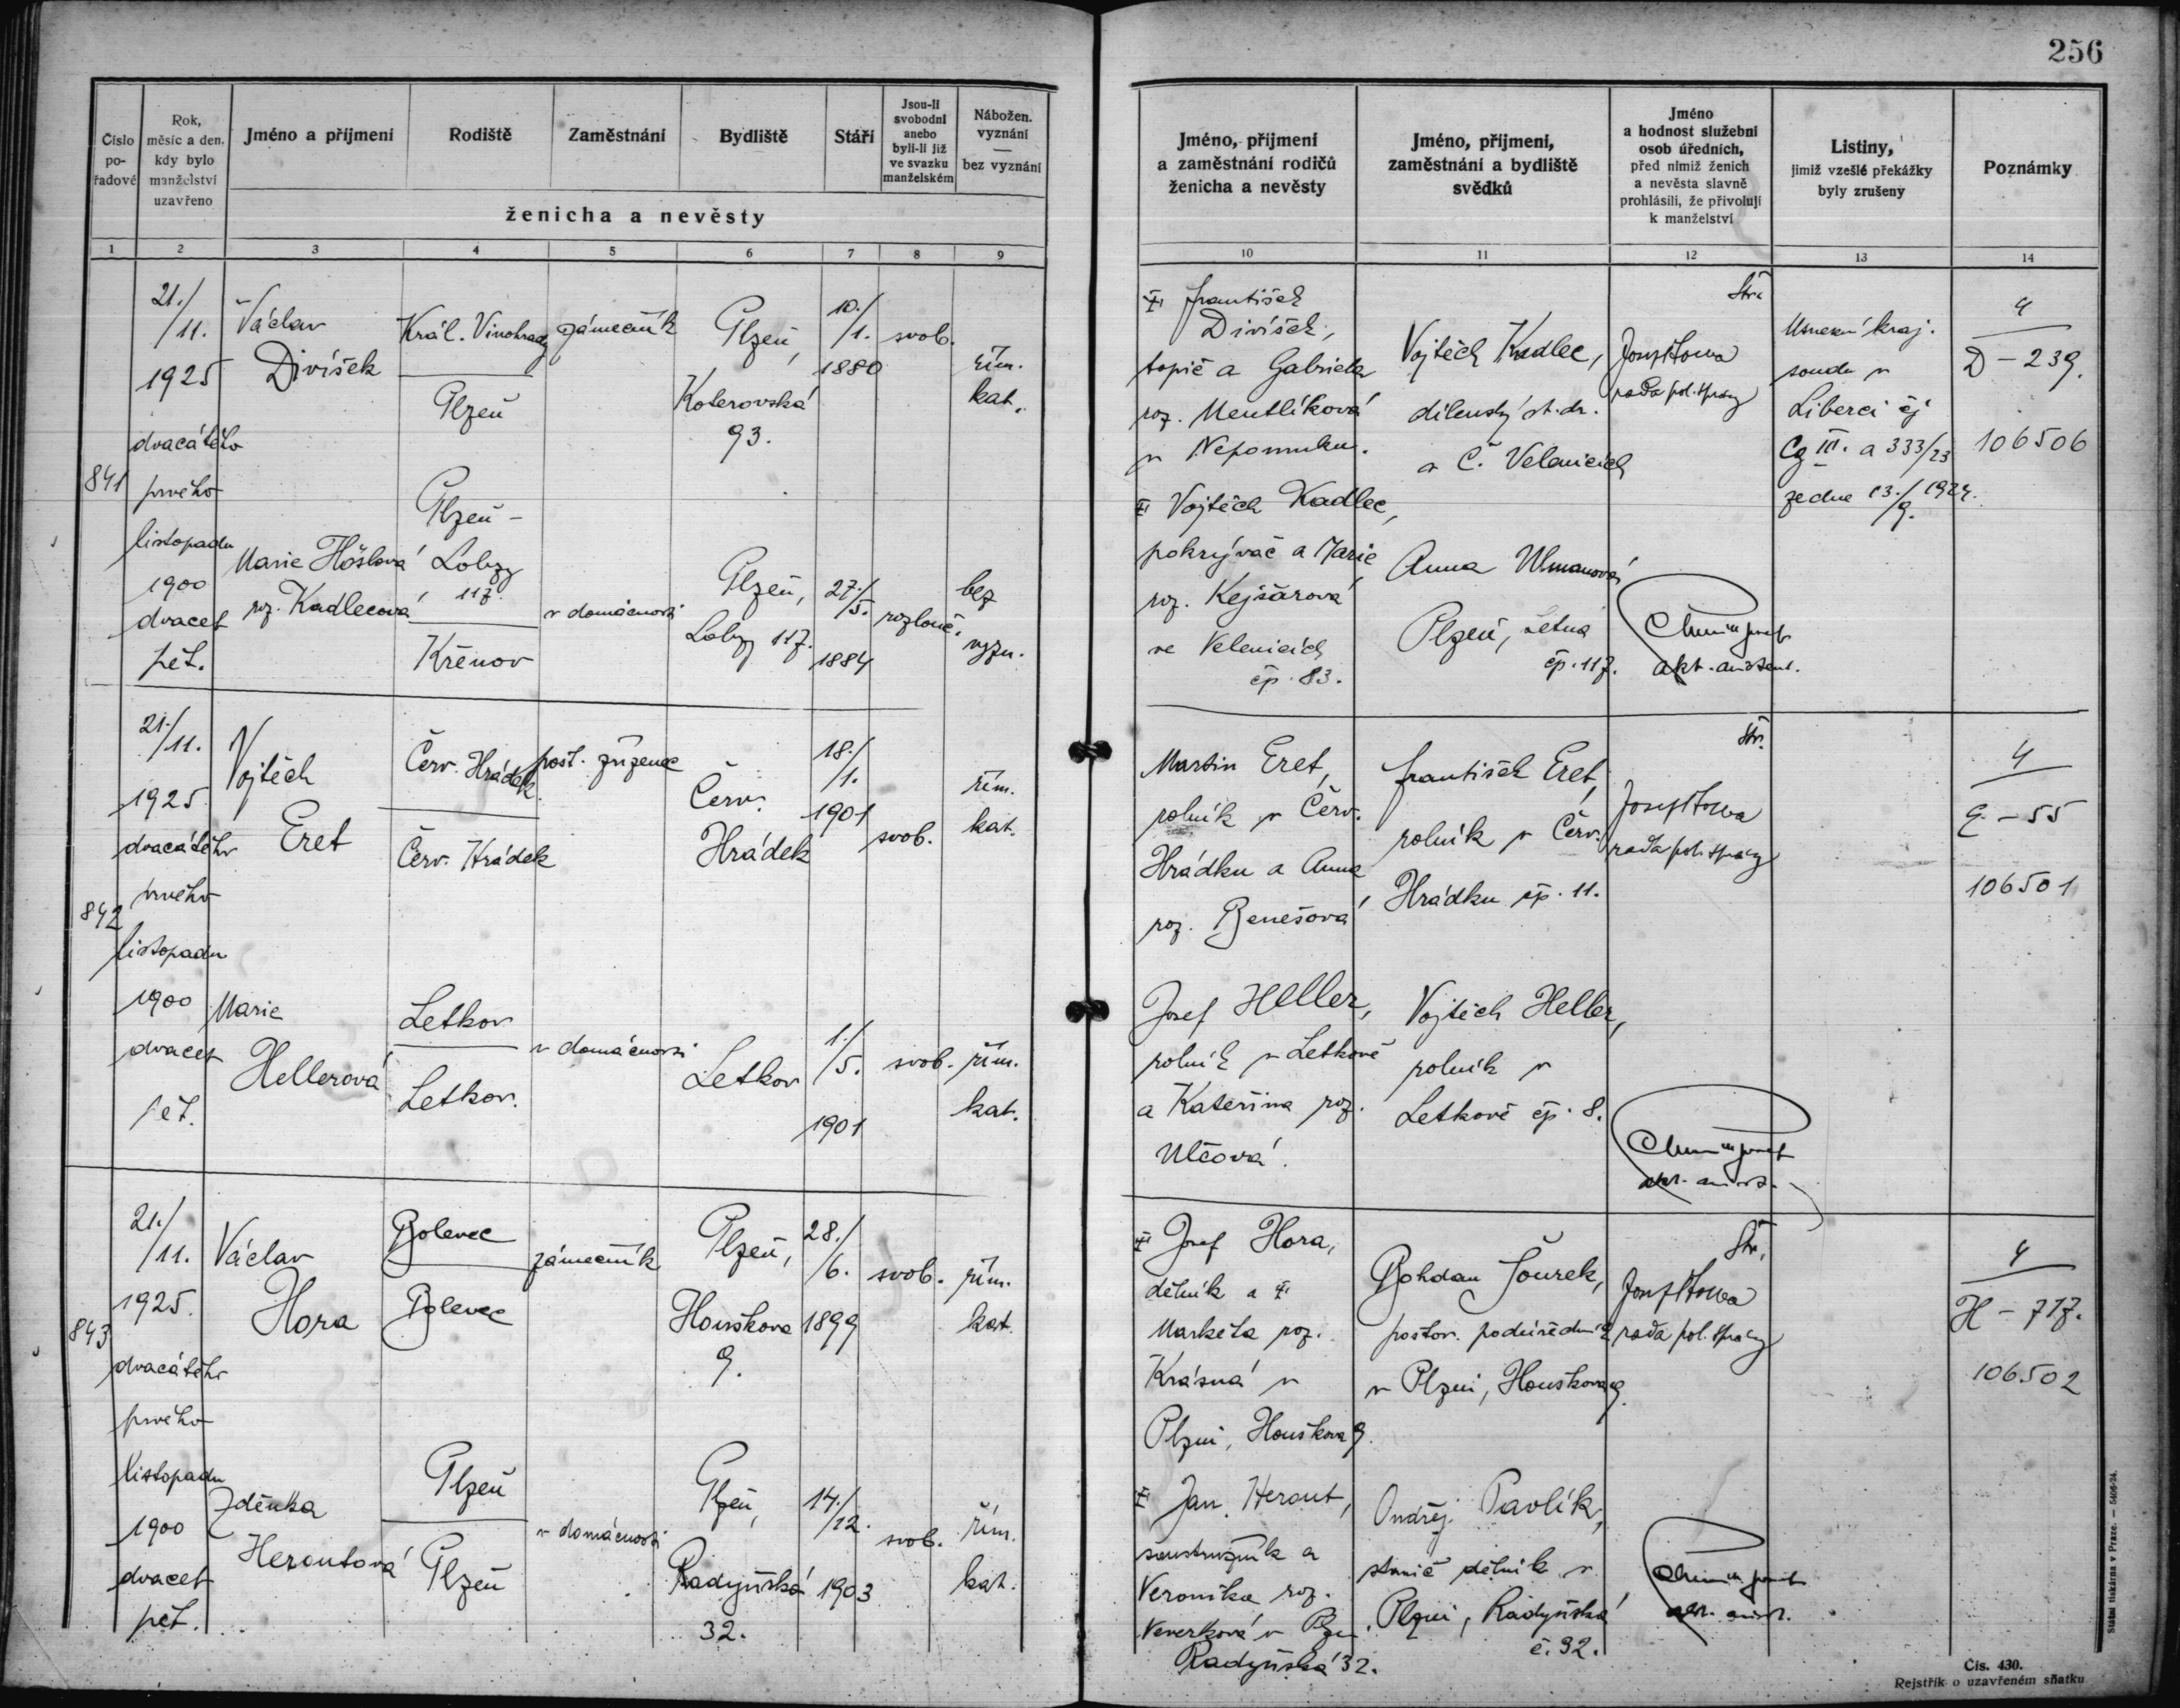 256
Číslo pořadové
Rok, měsíc a den, kdy bylo manželství uzavřeno
Jméno a příjmení
Rodiště
Zaměstnání
Bydliště
Stáří
Jsou-li svobodni anebo byli-li již ve svazku manželském
Nábožen. vyznání — bez vyznání
ženicha a nevěsty
Jméno, příjmení a zaměstnání rodičů ženicha a nevěsty
Jméno, příjmení, zaměstnání a bydliště svědků
Jméno a hodnost služební osob úředních, před nimiž ženich a nevěsta slavně prohlásili, že přivolují k manželství
Listiny, jimiž vzešlé překážky byly zrušeny
Poznámky
1 2 3 4 5 6 7 8 9 10 11 12 13 14
841
21./11.
1925
dvacátého
prvého
listopadu
1900
dvacet
pět.
Václav
Divíšek
Král. Vinohrady
Plzeň
zámečník
Plzeň,
Koterovská
93.
10./1.
1880
svob.
řím.
kat.
Marie Höslová
roz. Kadlecová
Plzeň -
Lobzy
117.
Křenov
v domácnosti
Plzeň,
Lobzy 117.
27./5.
1884
rozlouč.
bez
vyzn.
František
Divíšek,
topič a Gabriela
roz. Mentlíková
v Nepomuku.
Vojtěch Kadlec,
pokrývač a Marie
roz. Kejšarová
ve Velenicích
čp. 83.
Vojtěch Kadlec,
dílenský st. dr.
v Č. Velenicích
Anna Ulmanová
Plzeň, Letná
čp. 117.
Str.
rada pol. správy
akt. assistent.
Usnesení kraj.
soudu v
Liberci čj
Cg III. a 333/23
ze dne 13./9. 1924.
4
D - 239.
106506
842
21./11.
1925
dvacátého
prvého
listopadu
1900
dvacet
pět.
Vojtěch
Eret
Červ. Hrádek.
Červ. Hrádek
pošt. zřízenec
Červ.
Hrádek
18./1.
1901
svob.
řím.
kat.
Marie
Hellerová
Letkov
Letkov.
v domácnosti
Letkov
1./5.
1901
svob.
řím.
kat.
Martin Eret,
rolník v Červ.
Hrádku a Anna
roz. Benešová
Josef Heller,
rolník v Letkově
a Kateřina roz.
Ulčová.
František Eret,
rolník v Červ.
Hrádku čp. 11.
Vojtěch Heller,
rolník v
Letkově čp. 8.
Str.
rada pol. správy
4
E - 55
106501
843
21./11.
1925.
dvacátého
prvého
listopadu
1900
dvacet
pět.
Václav
Hora
Bolevec
Bolevec
zámečník
Plzeň,
Houškova
9.
28./6.
1899
svob.
řím.
kat.
Zdeňka
Heroutová
Plzeň
Plzeň
v domácnosti
Plzeň,
Radyňská
32.
14./12.
1903
svob.
řím.
kat.
Josef Hora,
dělník a
Markéta roz.
Krásná v
Plzni, Houškova 9.
Jan Herout,
soustružník a
Veronika roz.
Veverková v Plzni
Radyňská 32.
Bohdan Šourek,
poštov. podúředník
v Plzni, Houškova 9.
Ondřej Pavlík,
dělník v
Plzni, Radyňská
č. 32.
Str.
rada pol. správy
4
H - 717.
106502
Státní tiskárna v Praze. — 5406-24.
Čís. 430.
Rejstřík o uzavřeném sňatku